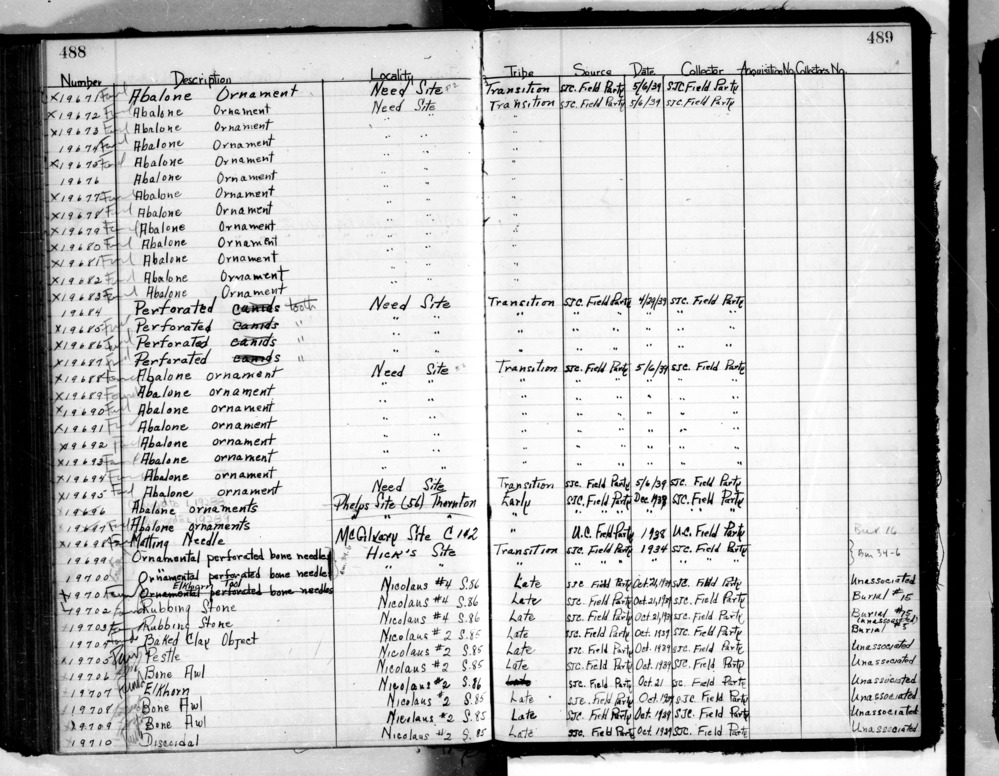 488
489
Number Description Locality Tribe Source Date Collector Acquisition No. Collectors No.
X19671 Abalone Ornament Need Site Transition SJC. Field Party 5/6/39 SJC Field Party
X19672 Abalone Ornament Need Site Transition SJC. Field Party 5/6/39 SJC Field Party
X19673 Abalone Ornament " " "
19674 Abalone Ornament " " "
X19675 Abalone Ornament " " "
19676 Abalone Ornament " " "
X19677 Abalone Ornament " " "
X19678 Abalone Ornament " " "
X19679 Abalone Ornament " " "
X19680 Abalone Ornament " " "
X19681 Abalone Ornament " " "
X19682 Abalone Ornament " " "
X19683 Abalone Ornament " " "
19684 Perforated canids tooth Need Site Transition SJC. Field Party 4/29/39 SJC. Field Party
X19685 Perforated canids " " " " " " " " "
X19686 Perforated canids " " " " " " " " "
X19687 Perforated canids " " " " " " " " "
X19688 Abalone ornament Need Site Transition SJC. Field Party 5/6/39 SJC. Field Party
X19689 Abalone ornament " " " " " " " "
X19690 Abalone ornament " " " " " " " "
X19691 Abalone ornament " " " " " " " "
X19692 Abalone ornament " " " " " " " "
X19693 Abalone ornament " " " " " " " "
X19694 Abalone ornament " " " " " " " "
X19695 Abalone ornament Need Site Transition SJC. Field Party 5/6/39 SJC. Field Party
19696 Abalone ornaments Phelps Site (56) Thornton Early SJC. Field Party Dec 1938 SJC. Field Party
X19697 Abalone ornaments " "
X19698 Matting Needle McGilvary Site C 142 " U.C. Field Party 1938 U.C. Field Party Bur. 16
19699 Ornamental perforated bone needles Hick's Site Transition SJC. Field Party 1934 SJC. Field Party Bm 34-6
19700 Ornamental perforated bone needles
19701 Elkhorn Tool Ornamental perforated bone needles Nicolaus #4 S.86 Late SJC Field Party Oct. 21, 1939 SJC. Field Party Unassociated
19702 Rubbing Stone Nicolaus #4 S.86 Late SJC. Field Party Oct. 21, 1939 SJC. Field Party Burial #15
19703 Rubbing Stone Nicolaus #4 S.86 Late SJC. Field Party Oct. 21, 1939 SJC. Field Party Burial #15
19704 Baked Clay Object Nicolaus #2 S.85 Late SJC. Field Party Oct. 1939 SJC. Field Party Unassociated Burial #5
19705 Pestle Nicolaus #2 S.85 Late SJC. Field Party Oct. 1939 SJC. Field Party Unassociated
19706 Bone Awl Nicolaus #2 S.85 Late SJC. Field Party Oct. 1939 SJC. Field Party Unassociated
19707 Elkhorn Nicolaus #2 S.86 Late SJC. Field Party Oct. 21 SJC. Field Party Unassociated
19708 Bone Awl Nicolaus #2 S.85 Late SJC. Field Party Oct. 1939 SJC Field Party Unassociated
19709 Bone Awl Nicolaus #2 S.85 Late SJC. Field Party Oct. 1939 SJC. Field Party Unassociated
19710 Discoidal Nicolaus #2 S.85 Late SJC. Field Party Oct. 1939 SJC. Field Party Unassociated